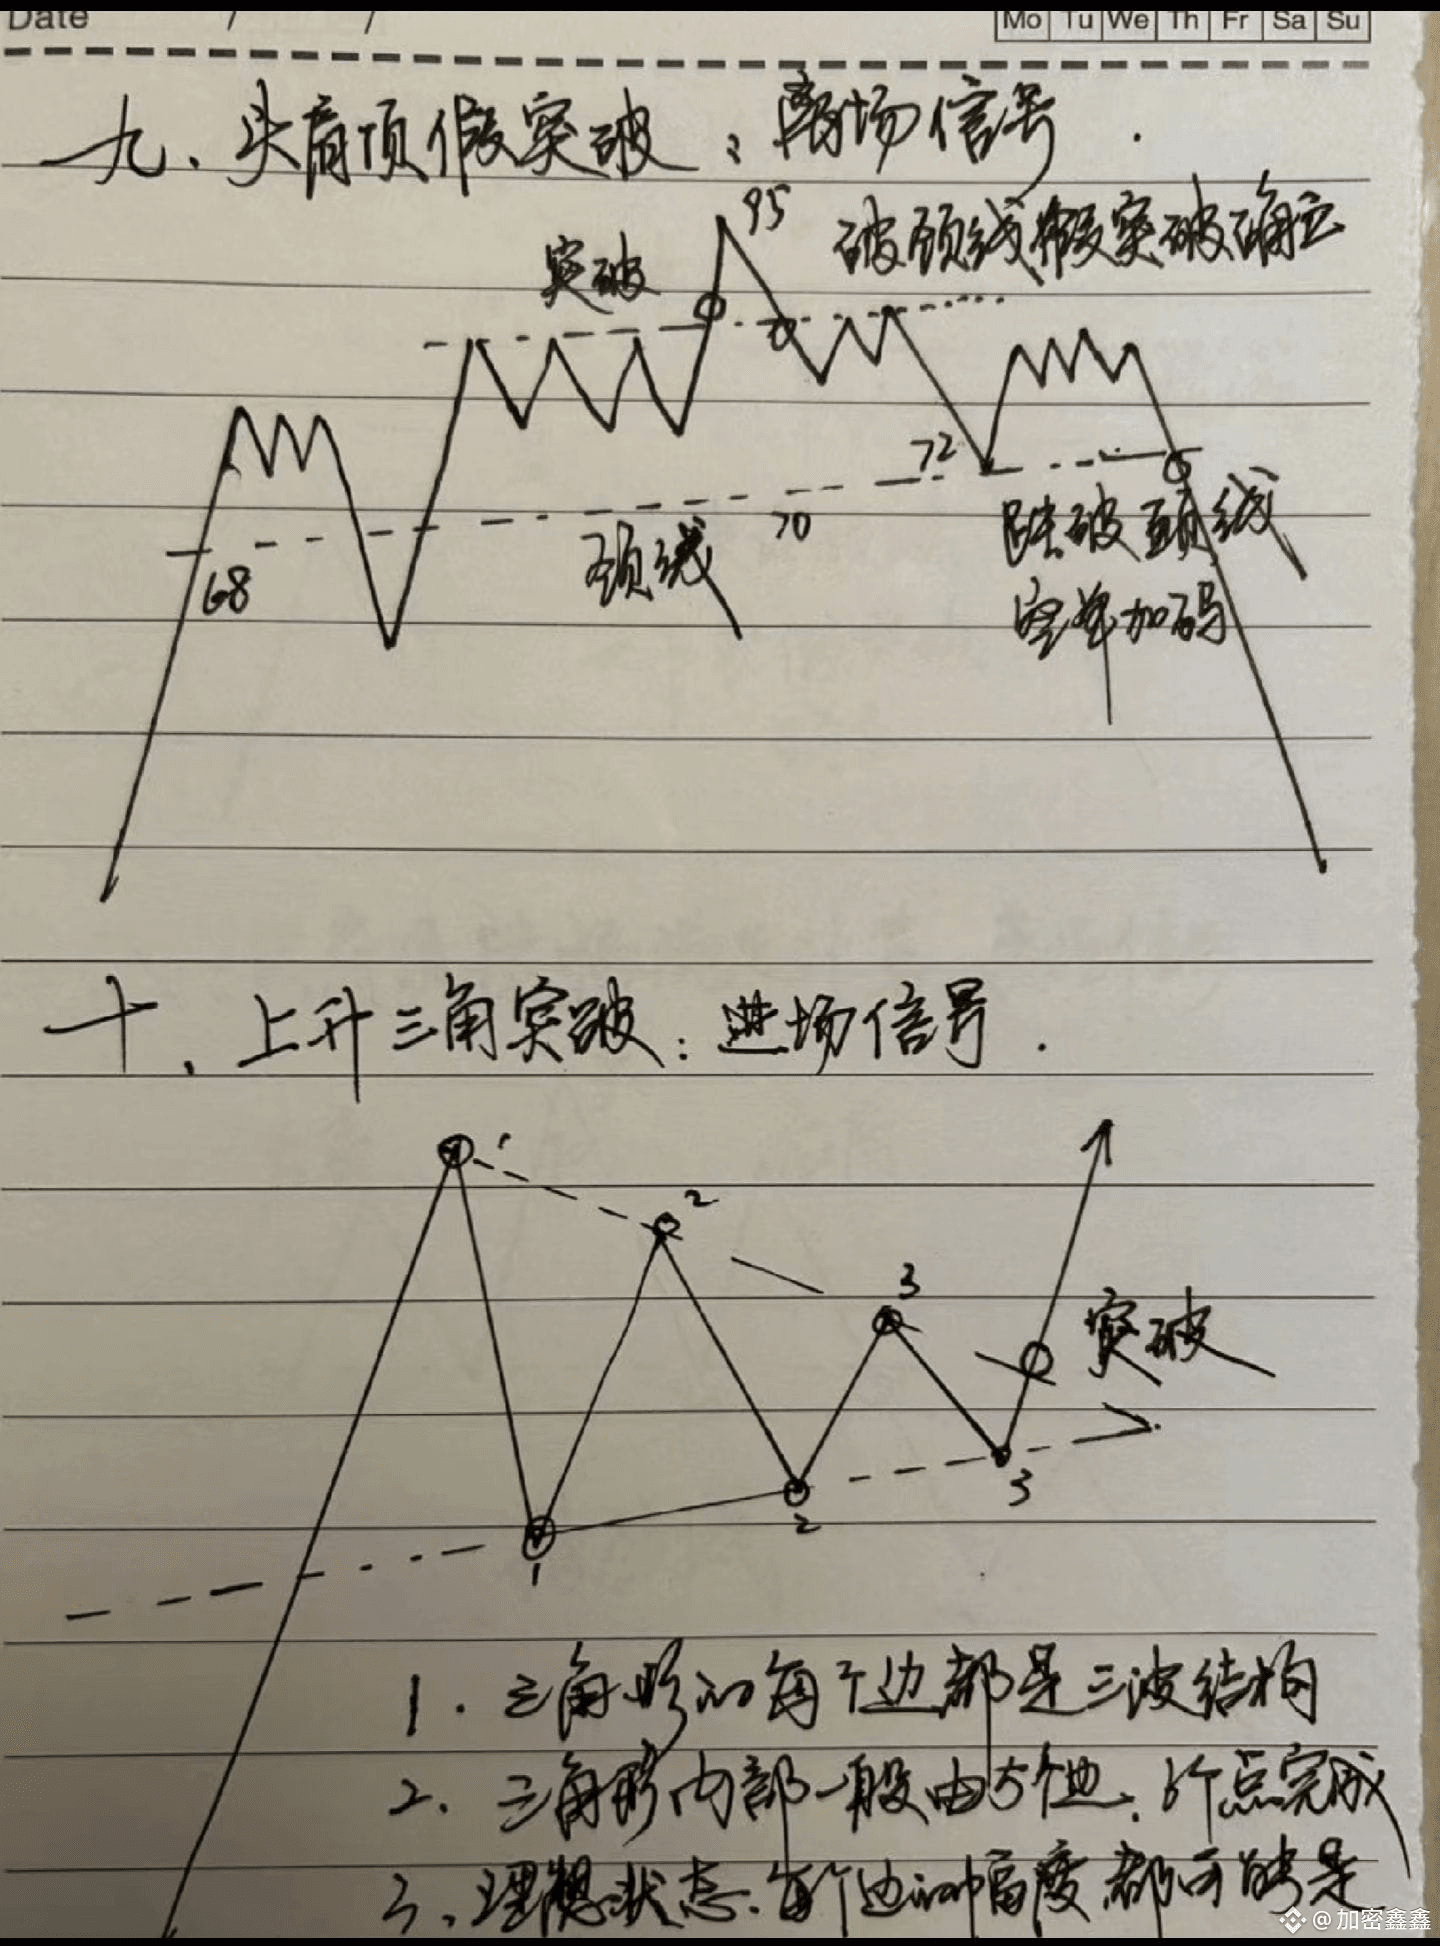 Date / /
Mo Tu We Th Fr Sa Su
九、头肩顶假突破：离场信号．
95
突破
破颈线假突破确立
72
70
颈线
68
跌破颈线
空单加码
十、上升三角突破：进场信号．
1
2
3
突破
3
2
1
1．三角形的每个边都是三波结构
2、三角形内部一般由5个边、6个点完成
3、理想状态、每个边的幅度都可能是
@加密鑫鑫